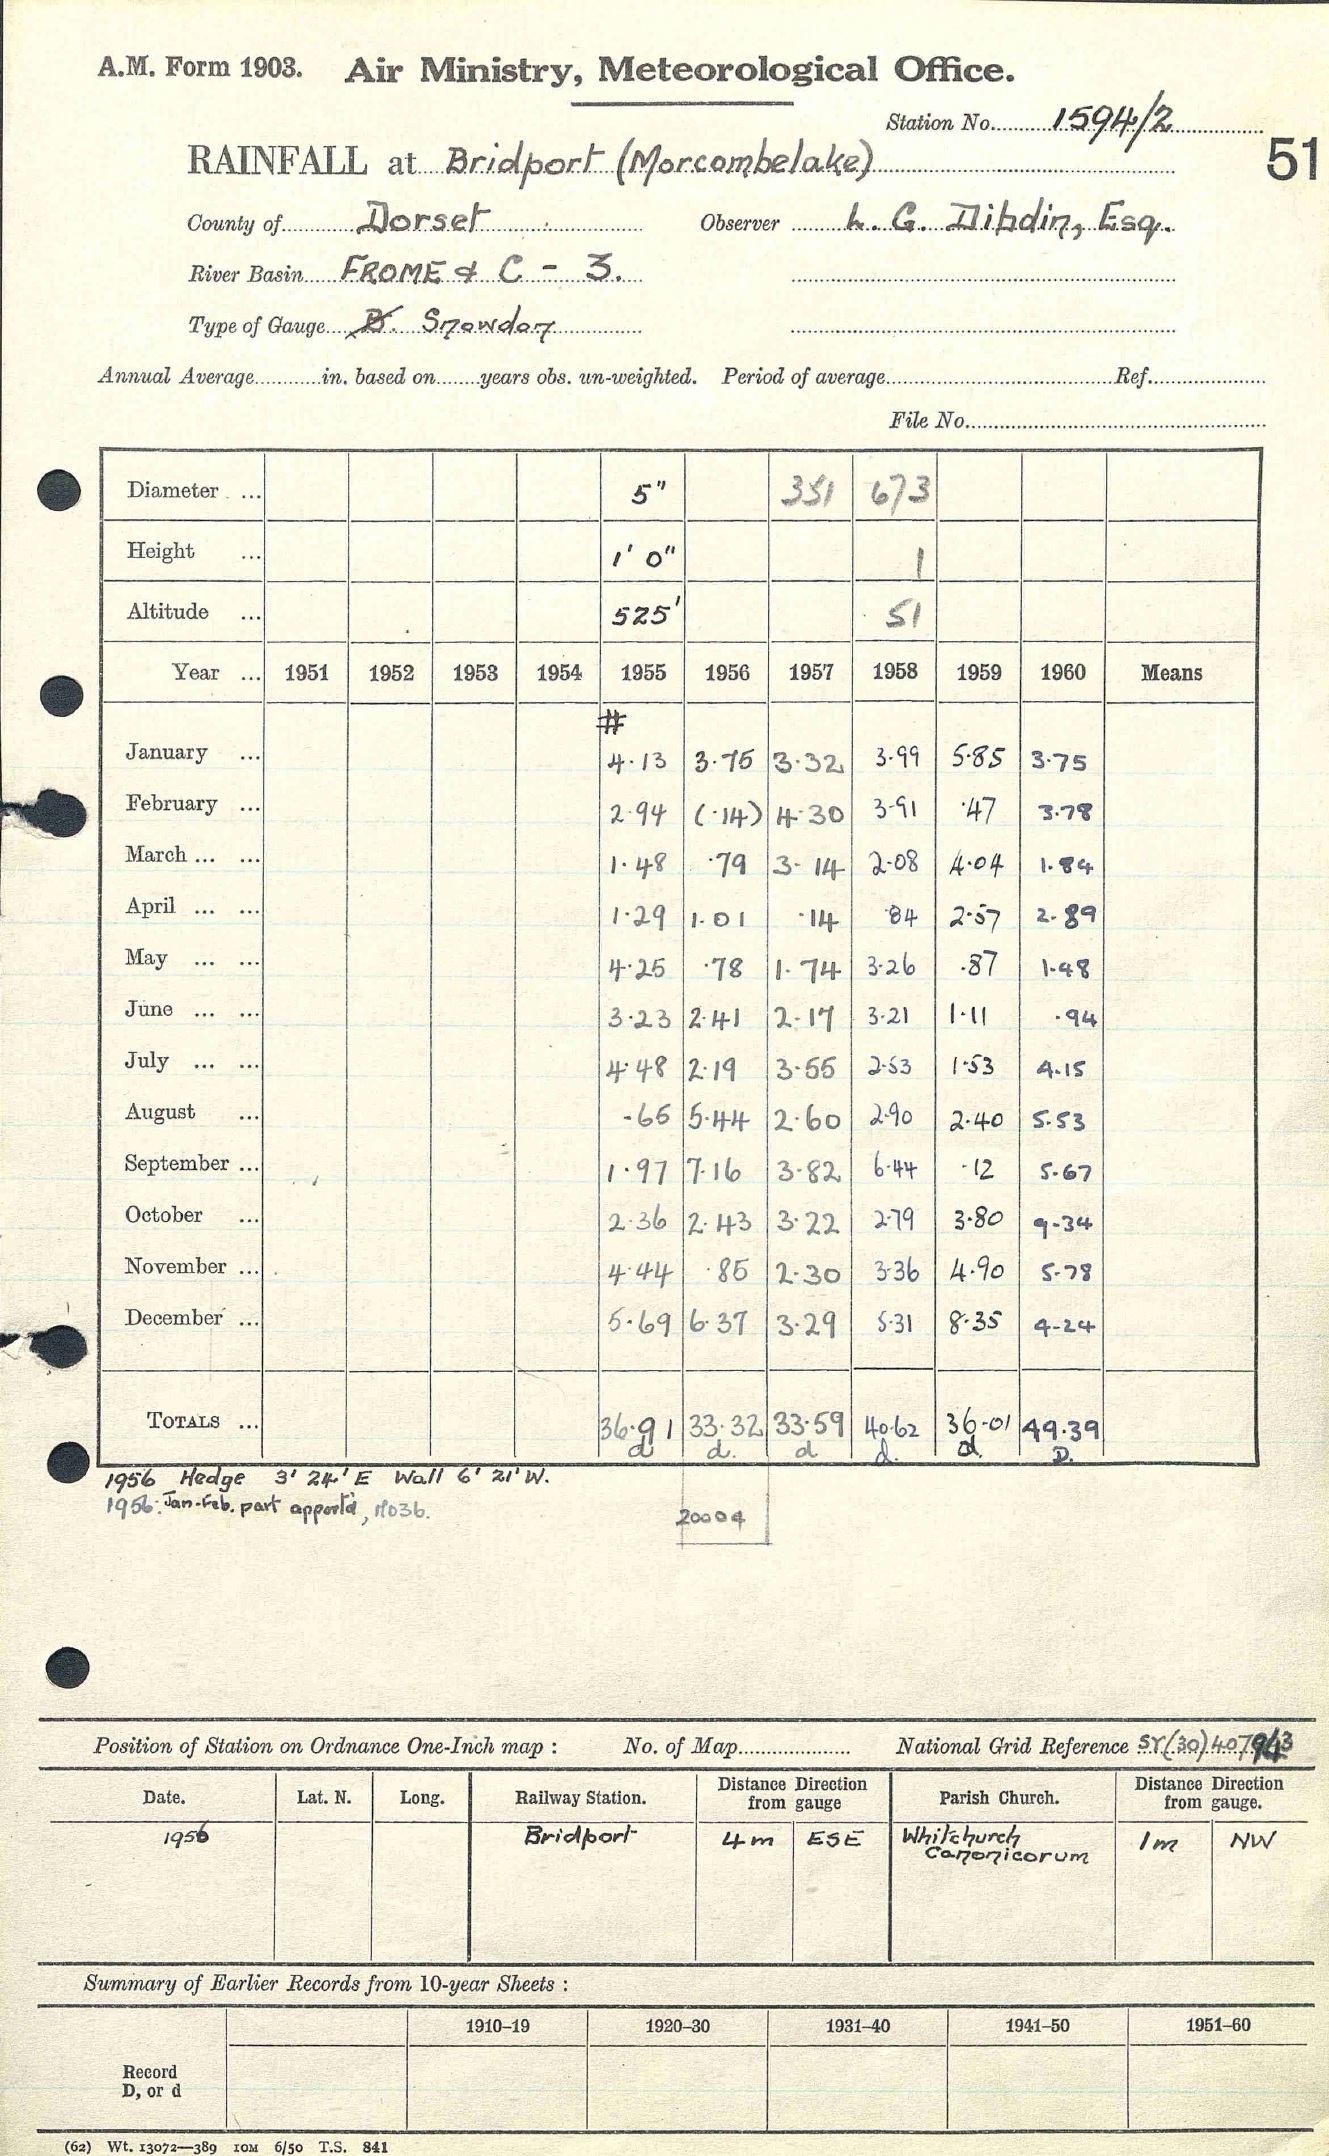 A.M. Form 1903. Air Ministry, Meteorological Office.
Station No. 1594/2
51
RAINFALL at Bridport (Morcombelake)
County of Dorset Observer L. G. Dibdin, Esq.
River Basin FROME & C - 3.
Type of Gauge B. Snowdon
Annual Average in. based on years obs. un-weighted. Period of average Ref.
File No.
Diameter ... 5" 351 673
Height ... 1' 0" 1
Altitude ... 525' 51
Year ... 1951 1952 1953 1954 1955 1956 1957 1958 1959 1960 Means
#
January ... 4.13 3.75 3.32 3.99 5.85 3.75
February ... 2.94 (.14) 4.30 3.91 .47 3.78
March ... ... 1.48 .79 3.14 2.08 4.04 1.84
April ... ... 1.29 1.01 .14 .84 2.57 2.89
May ... ... 4.25 .78 1.74 3.26 .87 1.48
June ... ... 3.23 2.41 2.17 3.21 1.11 .94
July ... ... 4.48 2.19 3.55 2.53 1.53 4.15
August ... .65 5.44 2.60 2.90 2.40 5.53
September ... 1.97 7.16 3.82 6.44 .12 5.67
October ... 2.36 2.43 3.22 2.79 3.80 9.34
November ... 4.44 .85 2.30 3.36 4.90 5.78
December ... 5.69 6.37 3.29 5.31 8.35 4.24
TOTALS ... 36.91 33.32 33.59 40.62 36.01 49.39
d d. d d. d. D.
1956 Hedge 3' 24' E Wall 6' 21' W.
1956: Jan-Feb. part apport'd, MO3b.
20004
Position of Station on Ordnance One-Inch map : No. of Map National Grid Reference SY(30)407943
Date. Lat. N. Long. Railway Station. Distance Direction from gauge Parish Church. Distance Direction from gauge.
1956 Bridport 4m ESE Whitchurch Canonicorum 1m NW
Summary of Earlier Records from 10-year Sheets :
1910–19 1920–30 1931–40 1941–50 1951–60
Record
D, or d
(62) Wt. 13072—389 10M 6/50 T.S. 841